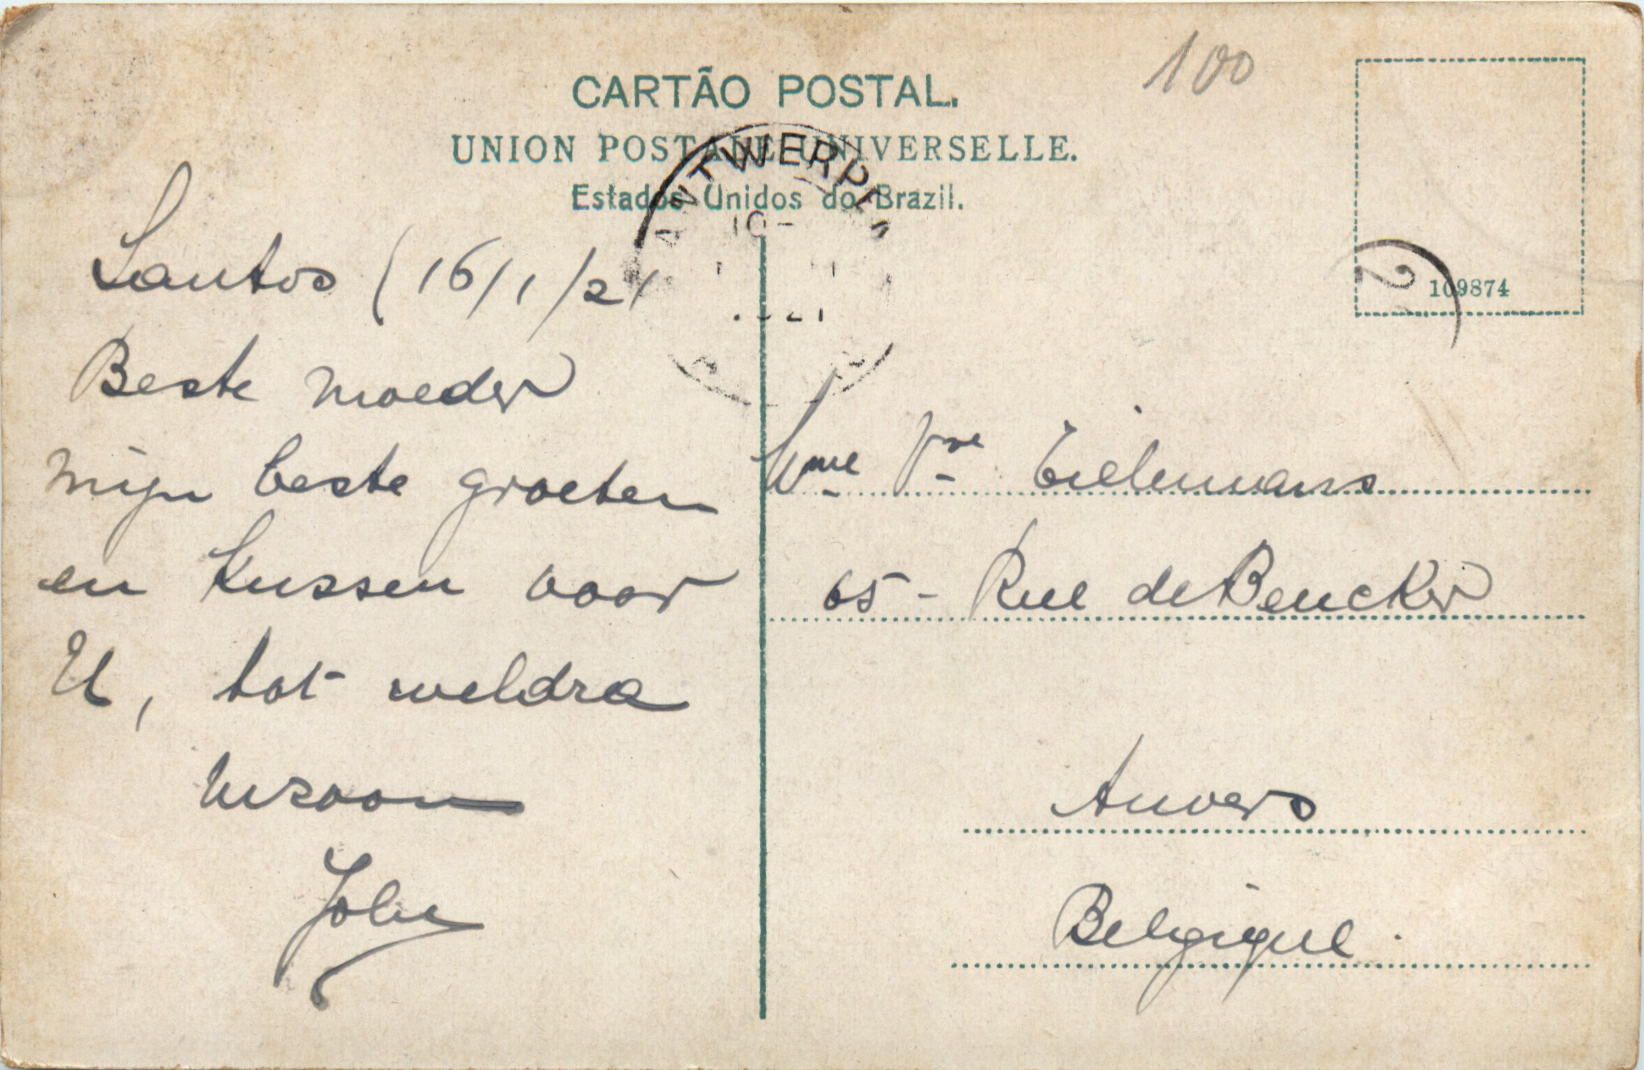 100
CARTÃO POSTAL.
UNION POSTALE UNIVERSELLE.
Estados Unidos do Brazil.
ANTWERPEN
109874
Santos (16/1/21
Beste moeder
mijn beste groeten
en kussen voor
U, tot weldra
Uw zoon
John
Mme Vve Tielemans
65 - Rue de Beucker
Anvers
Belgique.